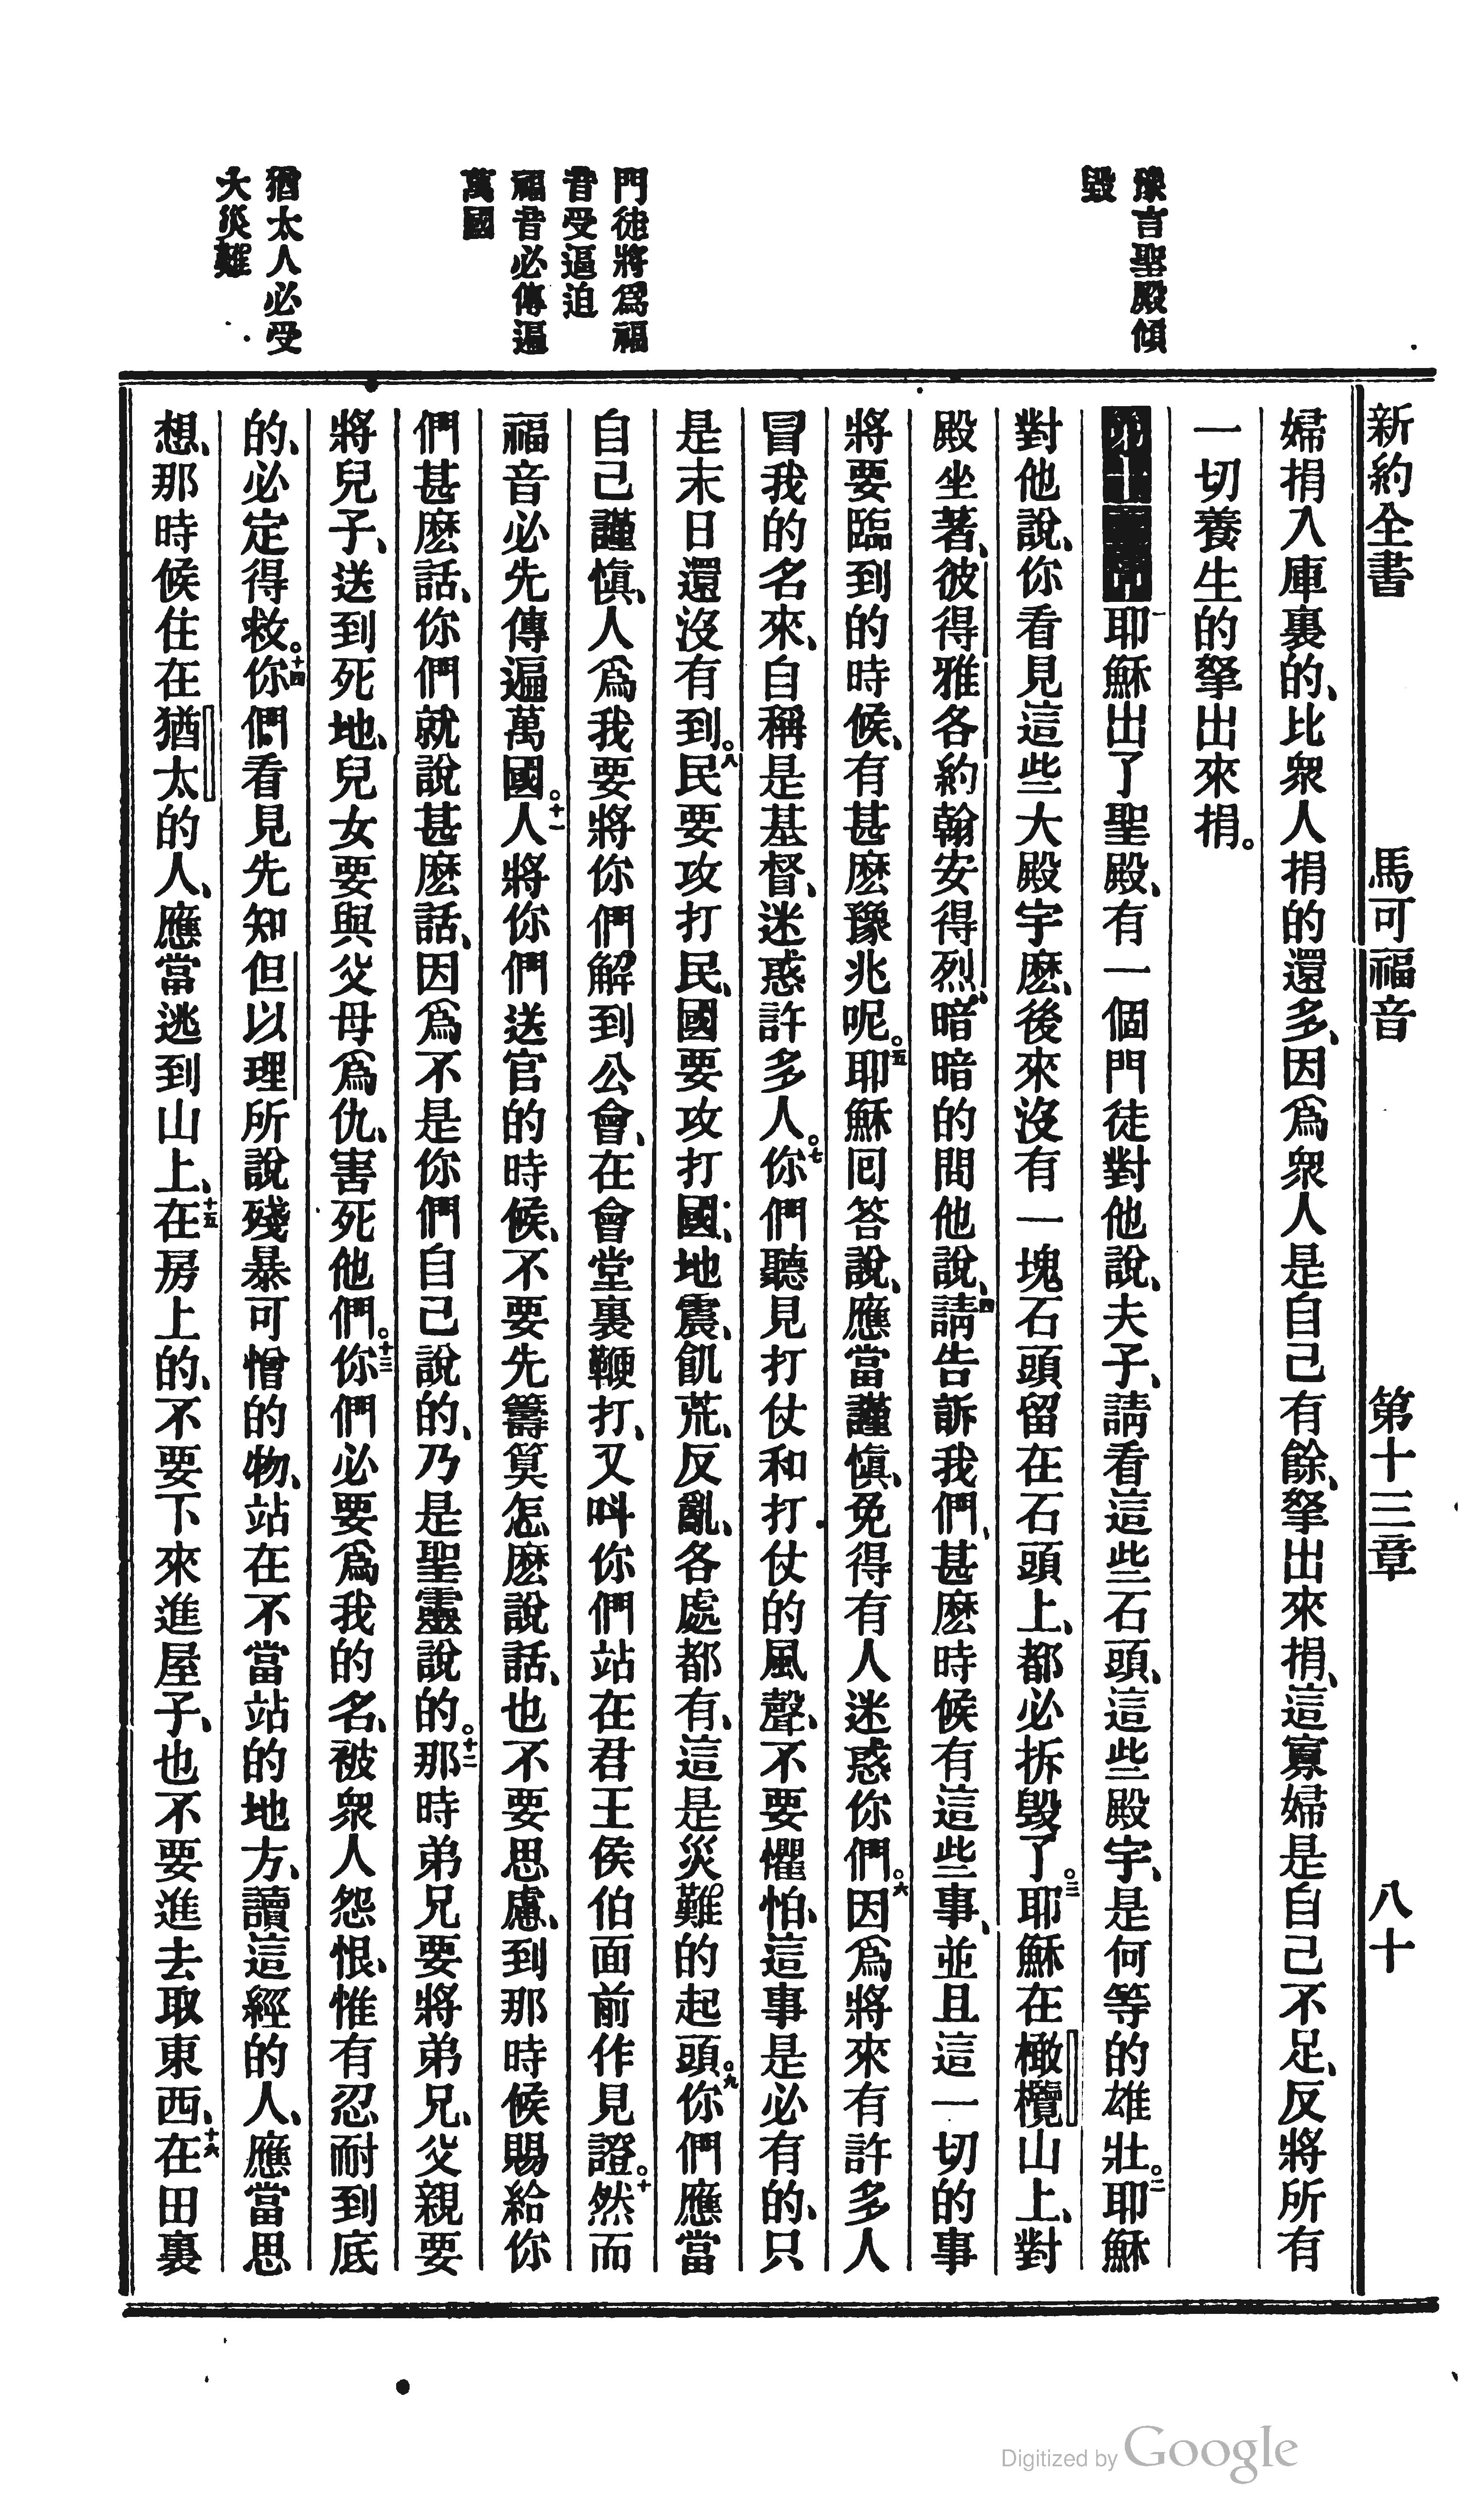 新約全書 馬可福音 第十三章 八十
豫言聖殿傾
毀
門徒將爲福
音受逼迫
福音必傳遍
萬國
猶太人必受
大災難
婦捐入庫裏的、比衆人捐的還多、因爲衆人是自己有餘、拏出來捐、這寡婦是自己不足、反將所有
一切養生的拏出來捐。
一耶穌出了聖殿、有一個門徒對他說、夫子、請看這些石頭、這些殿宇、是何等的雄壯。二耶穌
對他說、你看見這些大殿宇麽、後來沒有一塊石頭留在石頭上、都必拆毀了。三耶穌在橄欖山上、對
殿坐著、彼得雅各約翰安得烈、暗暗的問他說、四請告訴我們、甚麽時候有這些事、並且這一切的事
將要臨到的時候、有甚麽豫兆呢。五耶穌回答說、應當謹愼、免得有人迷惑你們。六因爲將來有許多人
冒我的名來、自稱是基督、迷惑許多人。七你們聽見打仗和打仗的風聲、不要懼怕、這事是必有的、只
是末日還沒有到。八民要攻打民、國要攻打國、地震、飢荒、反亂、各處都有、這是災難的起頭。九你們應當
自己謹愼、人爲我要將你們解到公會、在會堂裏鞭打、又叫你們站在君王侯伯面前作見證。十然而
福音必先傳遍萬國。十一人將你們送官的時候、不要先籌算怎麽說話、也不要思慮、到那時候賜給你
們甚麽話、你們就說甚麽話、因爲不是你們自己說的、乃是聖靈說的。十二那時弟兄要將弟兄、父親要
將兒子、送到死地、兒女要與父母爲仇、害死他們。十三你們必要爲我的名、被衆人怨恨、惟有忍耐到底
的、必定得救。十四你們看見先知但以理所說殘暴可憎的物、站在不當站的地方、讀這經的人、應當思
想、那時候住在猶太的人、應當逃到山上、十五在房上的、不要下來進屋子、也不要進去取東西、十六在田裏
Digitized by Google